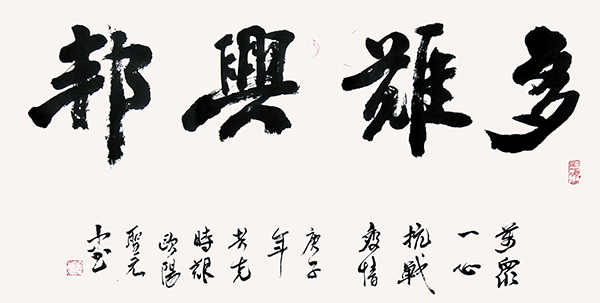 多難興邦
萬眾
一心
抗戰
疫情
庚子
年
共克
時艱
歐陽
聖元
書